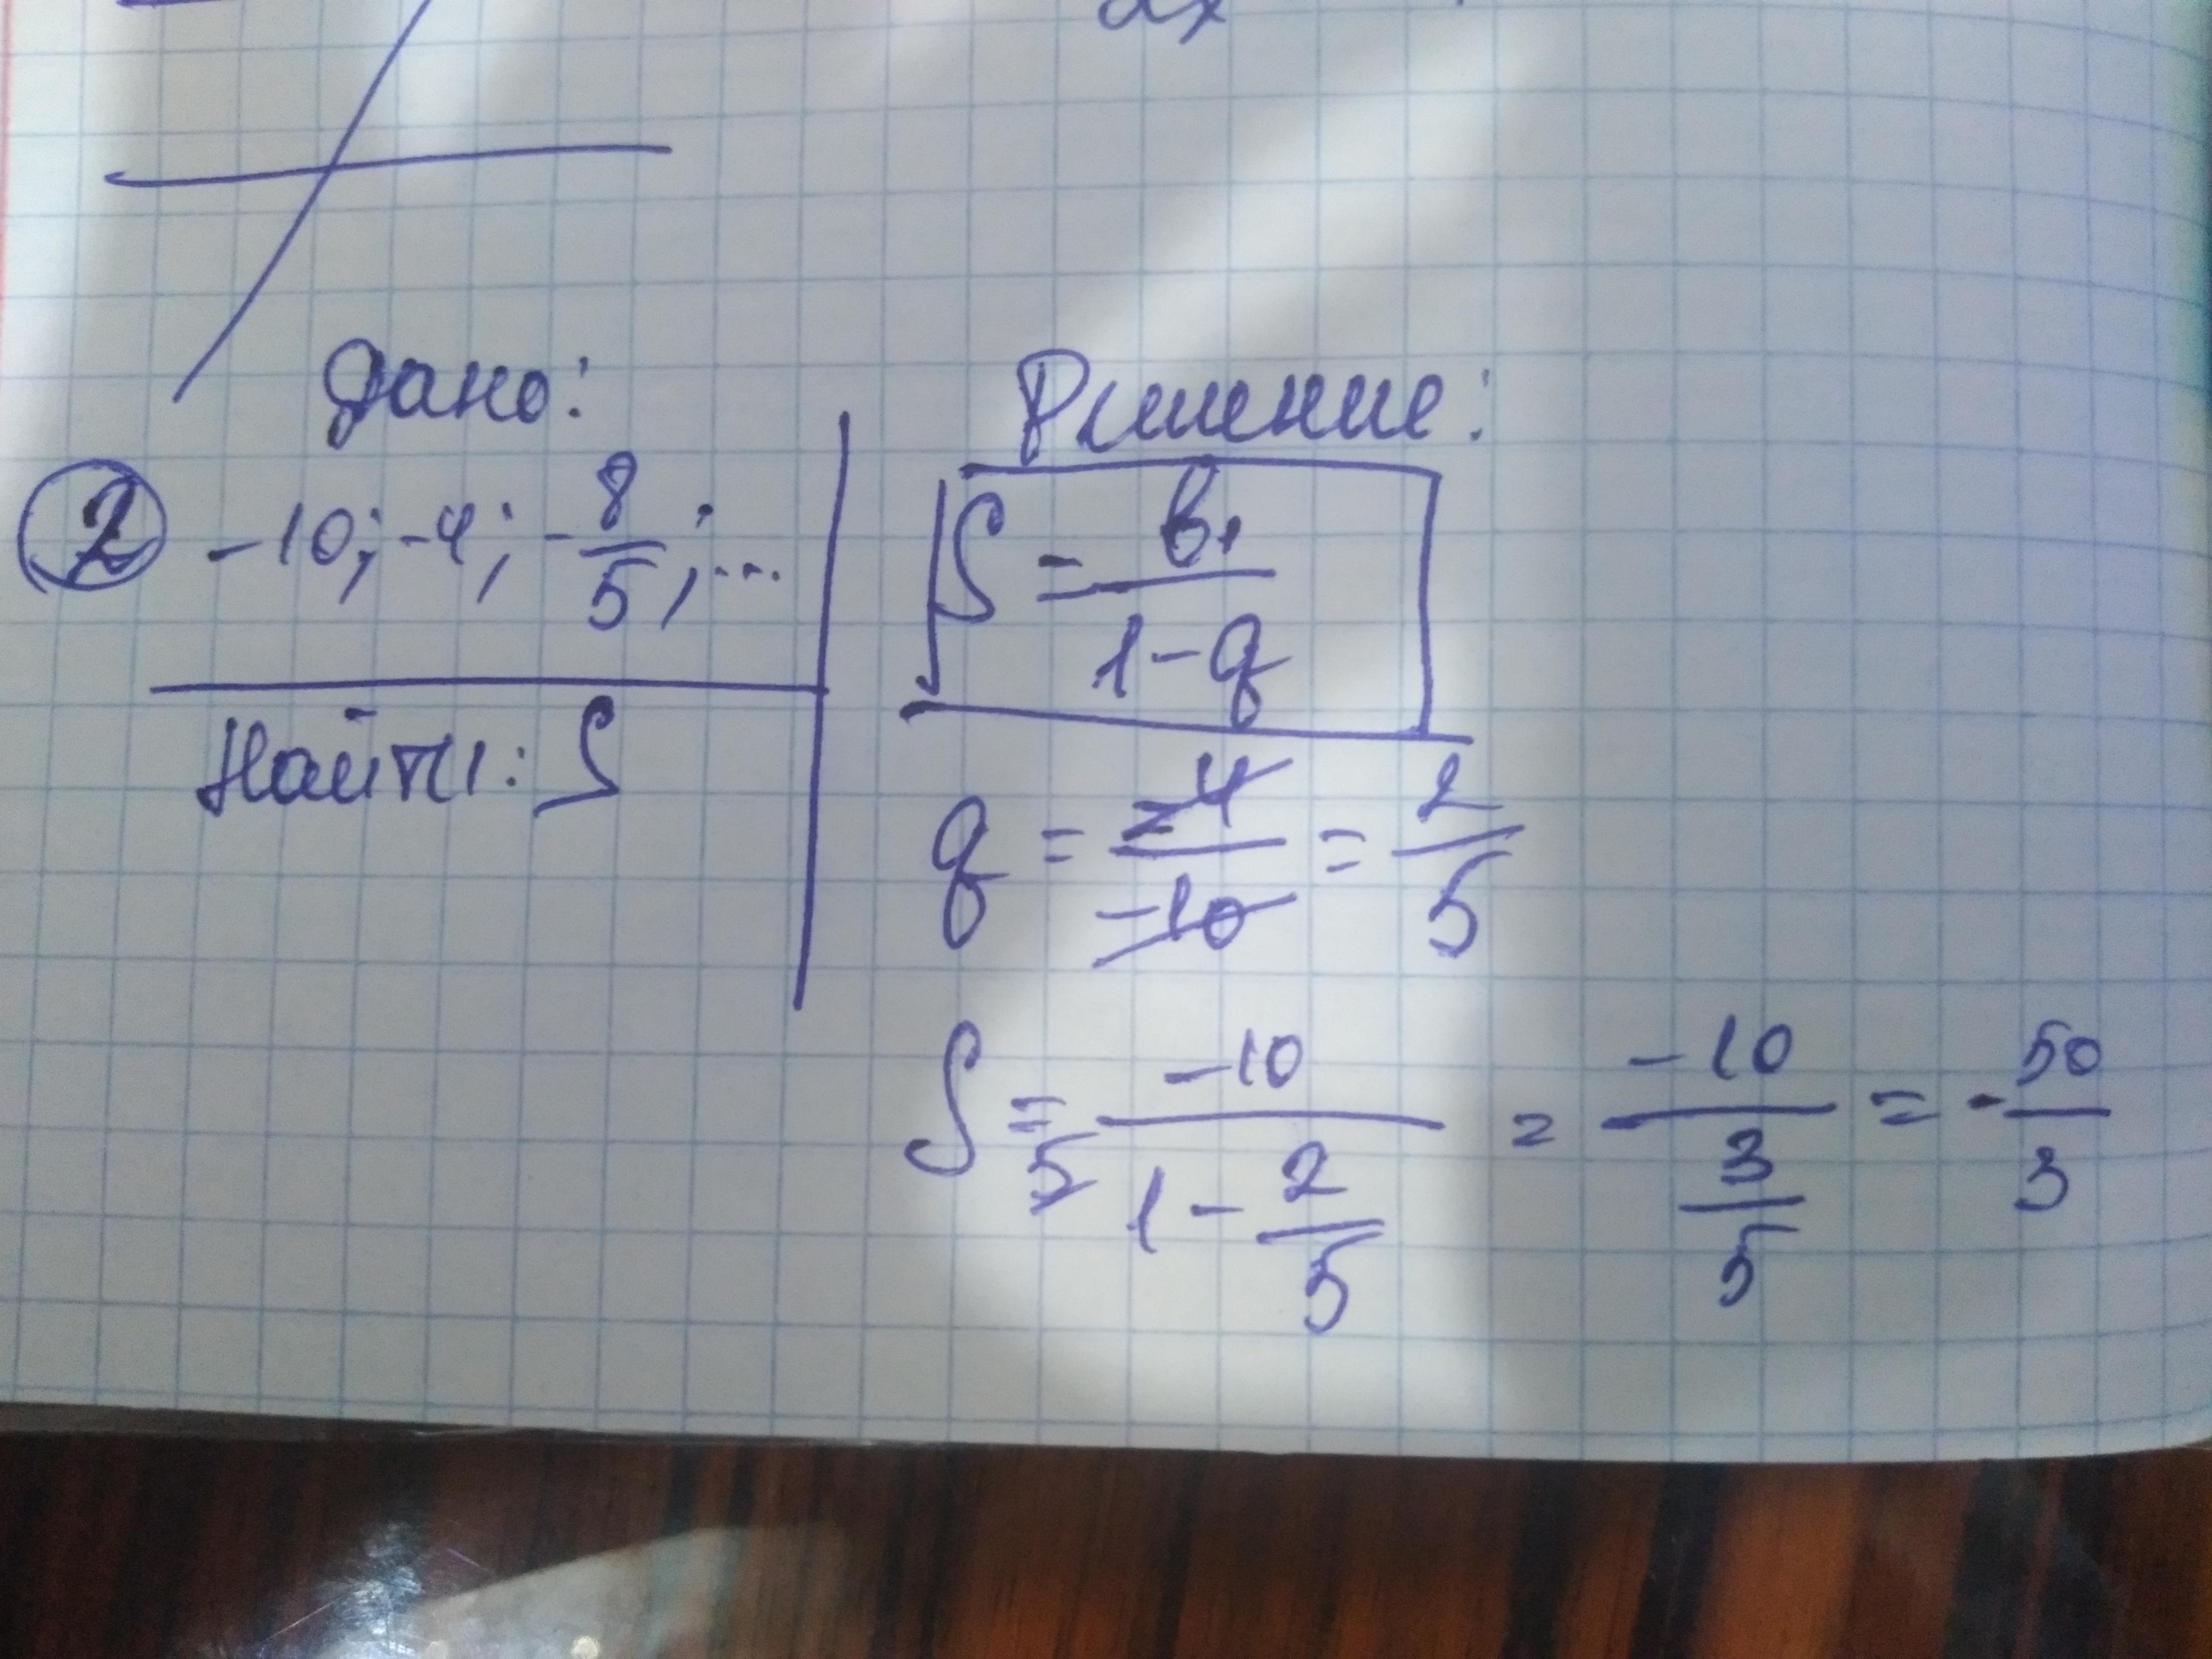 Дано:
2 -10; -4; -8/5; ...
Найти: S
Решение:
S = b₁/(1-q)
q = -4/-10 = 2/5
S = 5 -10/(1 - 2/5) = -10/(3/5) = -50/3